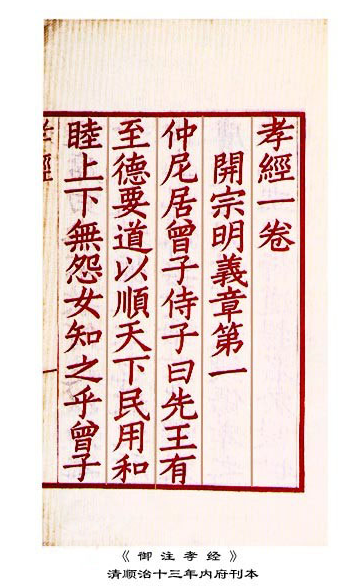 孝經一卷
開宗明義章第一
仲尼居曾子侍子曰先王有
至德要道以順天下民用和
睦上下無怨女知之乎曾子
孝經
一
《御注孝经》
清顺治十三年内府刊本